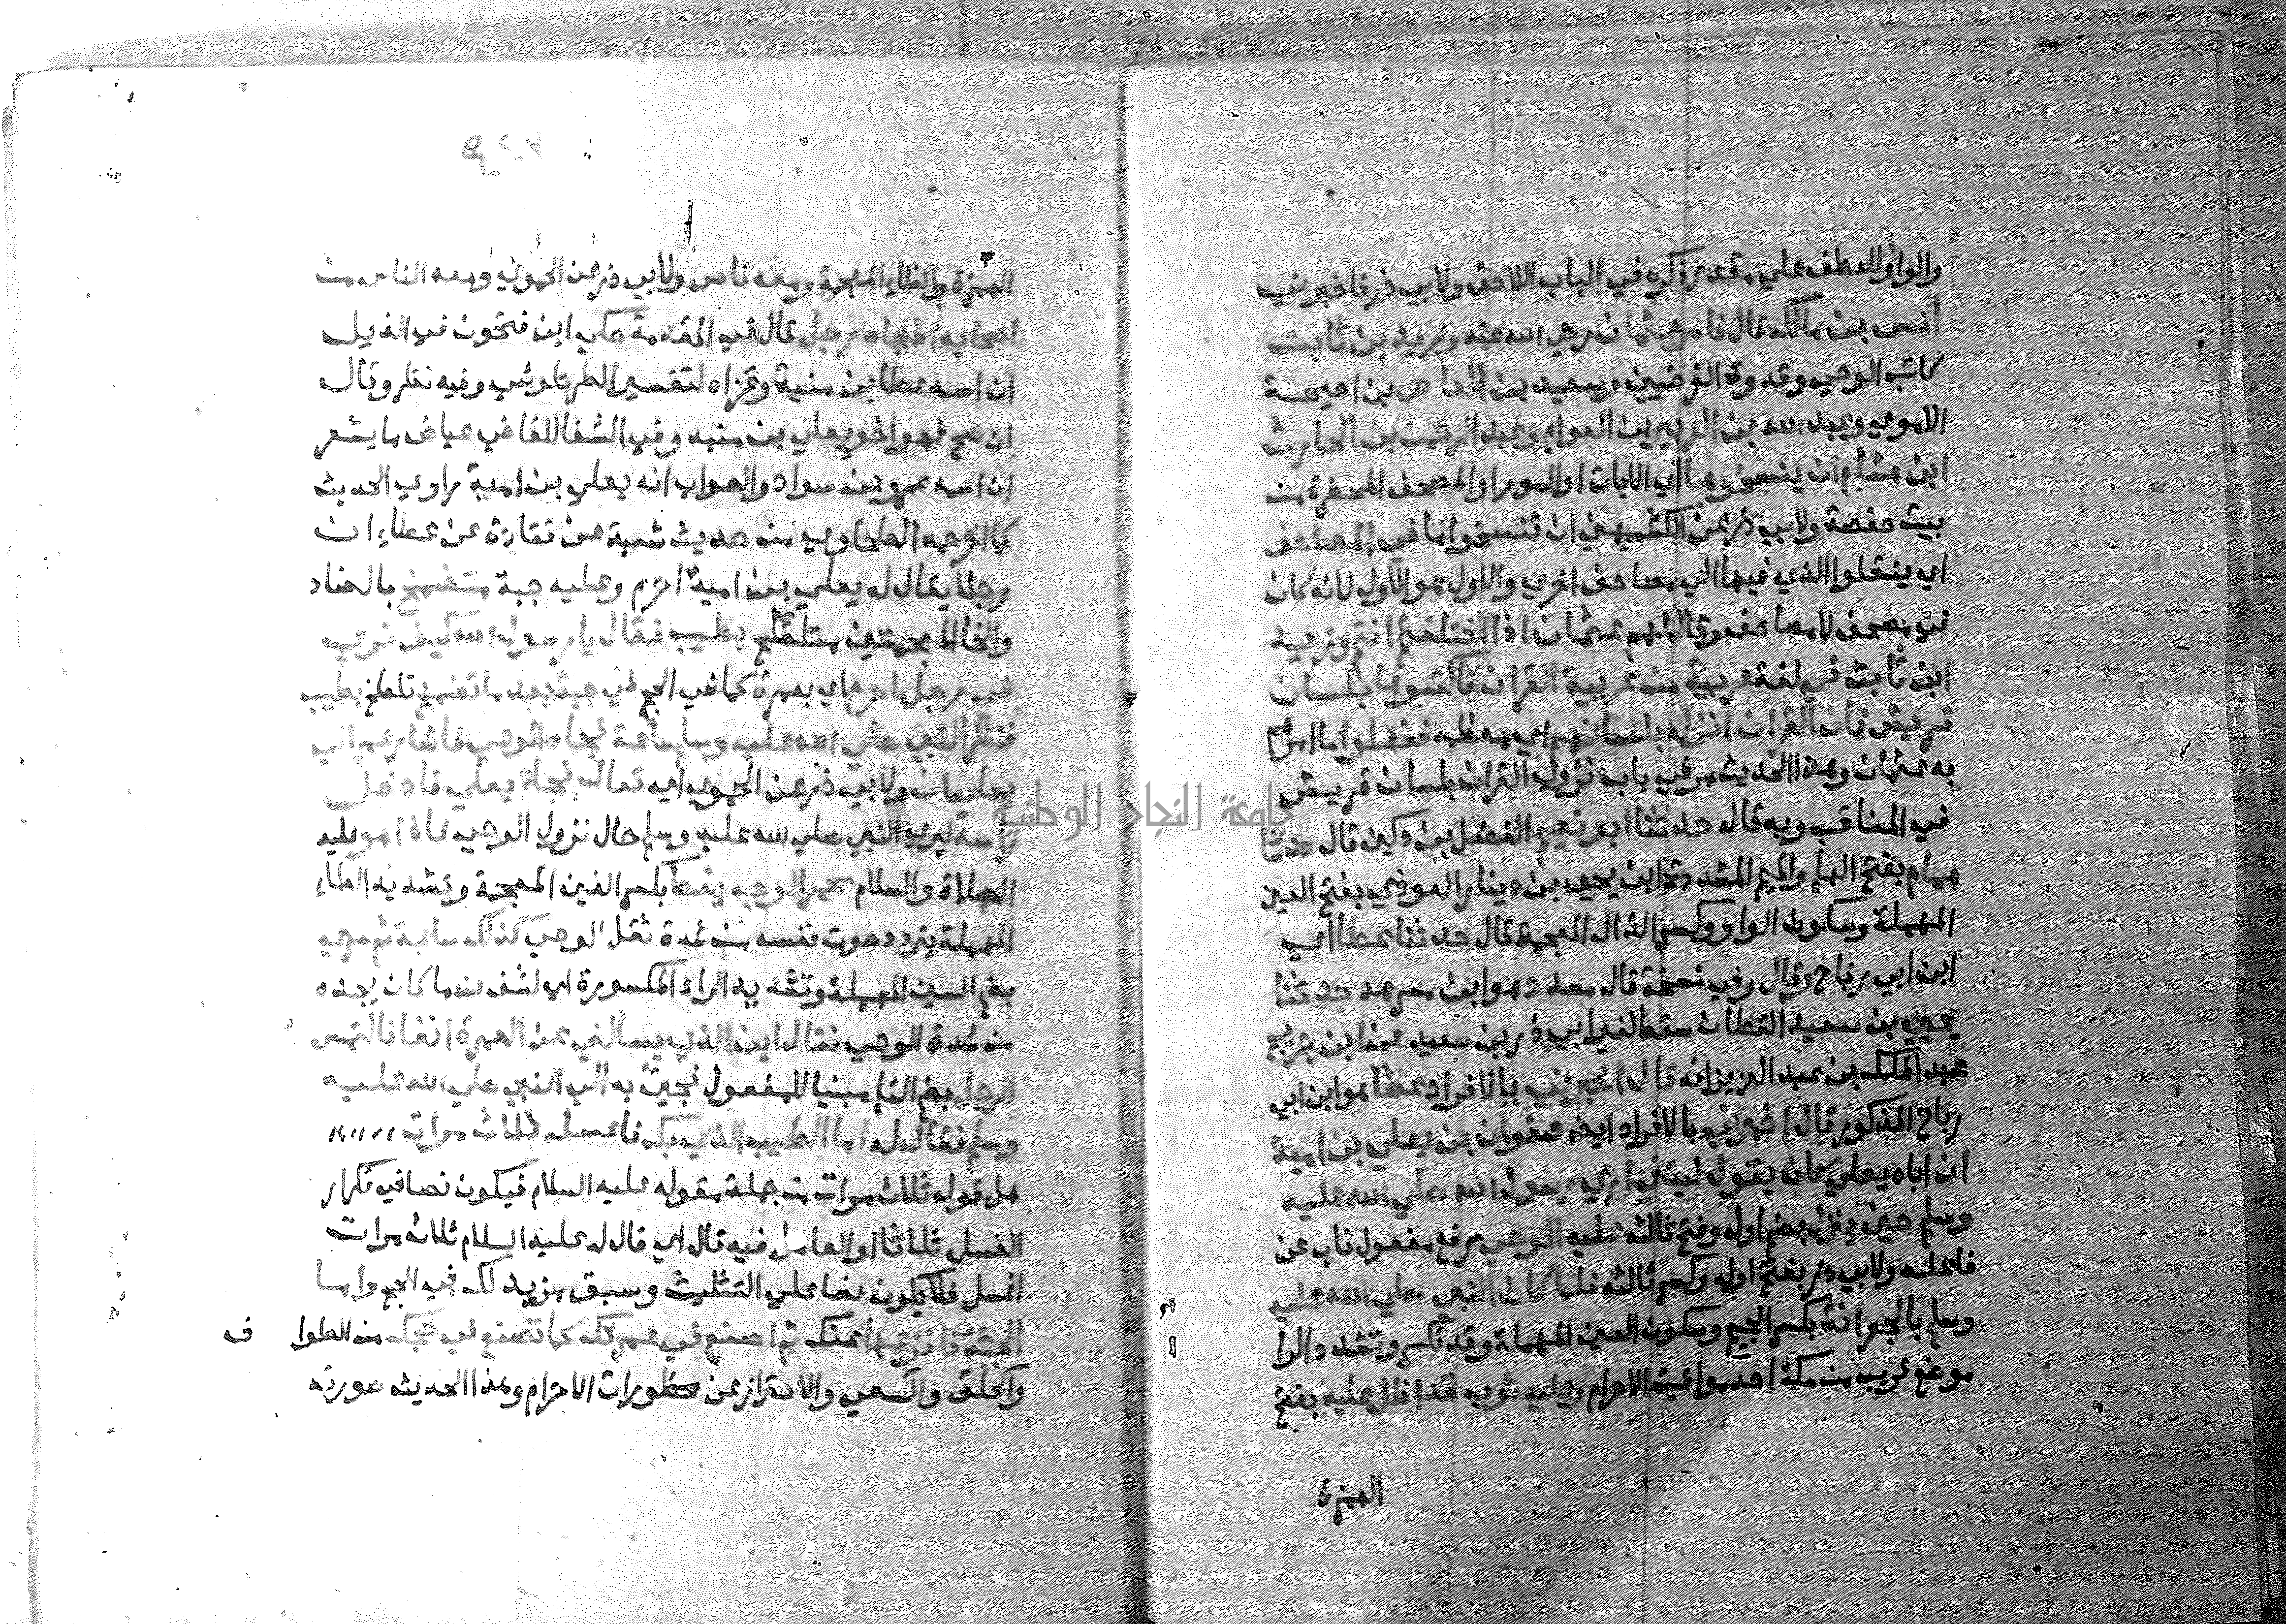 والواو للعطف علي مقدر ذكره في الباب اللاحق ولابي ذر فاخبرني
انس بن مالك قال فامر عثمان رضي الله عنه وزيد بن ثابت
كاتب الوحي وقدوة الفرضيين وسعيد بن العاص بن احيحة
الاموي وعبد الله بن الزبير بن العوام وعبد الرحمن بن الحارث
ابن هشام ان ينسخوها اي الايات او السور او المصحف المحضرة من
بيت حفصة ولابي ذر عن الكشميهني ان تنسخوا ما في المصاحف
اي ينقلوا الذي فيها الي مصاحف اخري والاول هو الاولي لانه كان
في مصحف لا مصاحف وقال لهم عثمان اذا اختلفتم انتم وزيد
ابن ثابت في لغة عربية من عربية القران فاكتبوها بلسان
قريش فان القران انزل بلسانهم اي معظمه ففعلوا ما امرهم
به عثمان وهذا الحديث مر في باب نزول القران بلسان قريش
في المناقب وبه قال حدثنا ابو نعيم الفضل بن دكين قال حدثنا
همام بفتح الهاء والميم المشددة ابن يحيي بن دينار العوذي بفتح العين
المهملة وسكون الواو وكسر الذال المعجمة قال حدثنا عطا اي
ابن ابي رباح وقال وفي نسخة قال مسدد هو ابن مسرهد حدثنا
يحيي بن سعيد القطان سقط لغير ابي ذر بن سعيد عن ابن جريج
عبد الملك بن عبد العزيز انه قال اخبرني بالافراد عطا هو ابن ابي
رباح المذكور قال اخبرني بالافراد ايضا صفوان بن يعلي بن امية
ان اباه يعلي كان يقول ليتني اري رسول الله صلي الله عليه
وسلم حين ينزل بضم اوله وفتح ثالثه عليه الوحي برفع مفعول ناب عن
فاعله ولابي ذر بفتح اوله وكسر ثالثه فلما كان النبي صلي الله عليه
وسلم بالجعرانة بكسر الجيم وسكون العين المهملة وقد تكسر وتشدد الرا
موضع قريب من مكة احد مواقيت الاحرام وعليه ثوب قد اظل عليه بفتح
الهمزة
الهمزة والظاء المعجمة ومعه ناس ولابي ذر عن الحموي ومعه الناس من
اصحابه اذ جاه رجل قال في المقدمة حكي ابن فتحون في الذيل
ان اسمه عطا بن منية وعزاه لتفسير الطرطوشي وفيه نظر وقال
ان صح فهو اخو يعلي بن منيه وفي الشفا للقاضي عياض ما يشعر
ان اسمه عمرو بن سواد والصواب انه يعلي بن امية راوي الحديث
كما اخرجه الطحاوي من حديث شعبة عن قتادة عن عطاء ان
رجلا يقال له يعلي بن امية احرم وعليه جبة متضمخ بالضاد
والخا المعجمتين متلطخ بطيب فقال يا رسول الله كيف تري
في رجل احرم اي بعمرة كما في الحج في جبة بعد ما تضمخ تلطخ بطيب
فنظر النبي صلي الله عليه وسلم ساعة فجاه الوحي فاشار عمر الي
يعلي ان ولابي ذر عن الحموي اي تعال فجاة يعلي فادخل
راسه ليري النبي صلي الله عليه وسلم حال نزول الوحي فاذا هو عليه
الصلاة والسلام محمر الوجه يغط بكسر الغين المعجمة وتشديد الطاء
المهملة يتردد صوت نفسه من شدة ثقل الوحي كذلك ساعة ثم سري
بضم السين المهملة وتشديد الراء المكسورة اي كشف عنه ما كان يجده
من شدة الوحي فقال اين الذي يسالني عن العمرة انفا فالتمس
الرجل بضم التاء مبنيا للمفعول فجئ به الي النبي صلي الله عليه
وسلم فقال له اما الطيب الذي بك فاغسله ثلاث مرات
هل قوله ثلاث مرات من جملة مقوله عليه السلام فيكون نصا في تكرار
الغسل ثلاثا او العامل فيه قال اي قال له عليه السلام ثلاث مرات
اغسل فلا يكون نصا علي التثليث وسبق مزيد لك في الحج واما
الجبة فانزعها عنك ثم اصنع في عمرتك كما تصنع في حجك من الطوا ف
والحلق والسعي والاحتراز عن محظورات الاحرام وهذا الحديث صورته
جامعة النجاح الوطنية